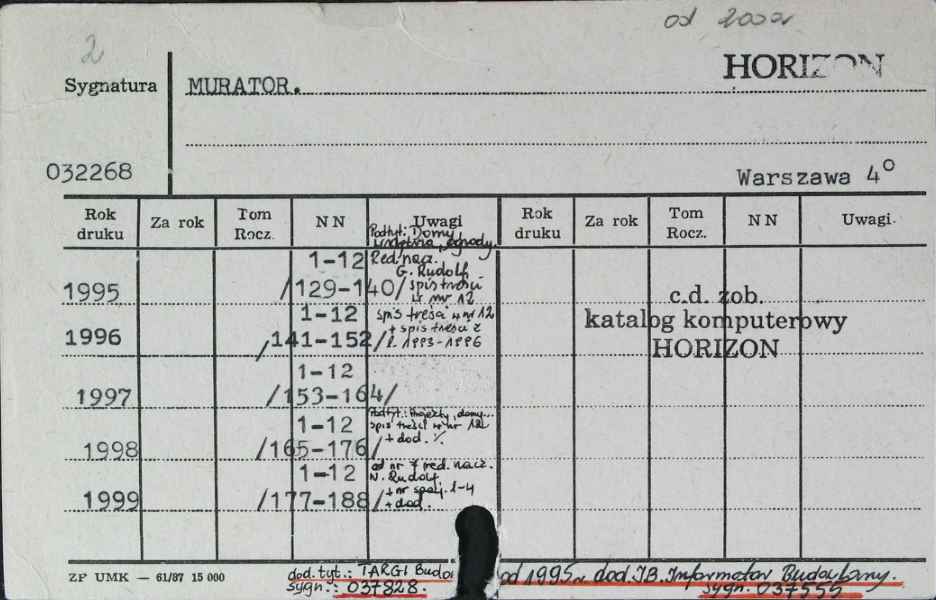 od 2000r
2
HORIZON
Sygnatura MURATOR.
032268
Warszawa 4°
Rok druku Za rok Tom Rocz. NN Uwagi Rok druku Za rok Tom Rocz. NN Uwagi
Podtyt: Domy
wnętrza, ogrody.
1-12 Red. nacz.
G. Rudolf
1995 /129-140/ spis treści
w nr 12
1-12 spis treści w nr 12
1996 /141-152/ + spis treści z
l. 1993-1996
1-12
1997 /153-164/
Podtyt.: Projekty, domy...
1-12 spis treści w nr 12
1998 /165-176/ + dod.
1-12 od nr 7 red. nacz.
N. Rudolf.
+ nr spec. 1-4
1999 /177-188/ + dod.
c.d. zob.
katalog komputerowy
HORIZON
ZP UMK — 61/87 15 000
dod. tyt.: TARGI Budo
sygn.: 037828.
od 1995r dod. IB. Informator Budowlany.
sygn. 037555